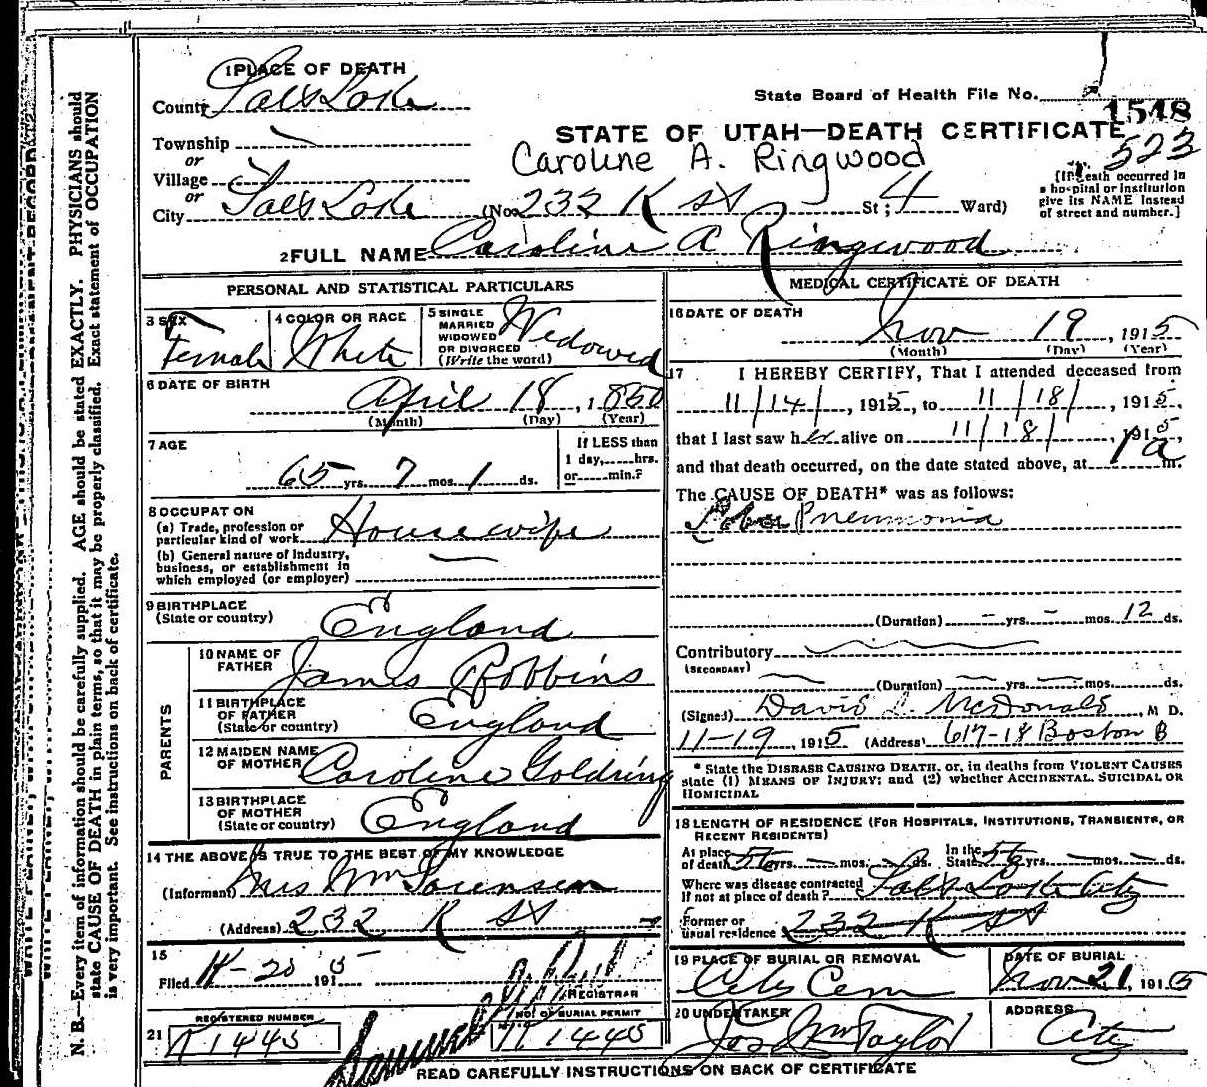 1 PLACE OF DEATH
County Salt Lake
State Board of Health File No. 1548
Township
or
STATE OF UTAH—DEATH CERTIFICATE
523
Village
Caroline A. Ringwood
or
City Salt Lake (No. 232 K St St; 4 Ward)
[If death occurred in
a hospital or institution
give its NAME instead
of street and number.]
2 FULL NAME Caroline A Ringwood
PERSONAL AND STATISTICAL PARTICULARS
3 SEX
Female
4 COLOR OR RACE
White
5 SINGLE
MARRIED
WIDOWED
OR DIVORCED
(Write the word)
Widowed
6 DATE OF BIRTH
April 18, 1850
(Month) (Day) (Year)
7 AGE
65 yrs. 7 mos. 1 ds.
If LESS than
1 day, hrs.
or min.?
8 OCCUPATION
(a) Trade, profession or
particular kind of work Housewife
(b) General nature of industry,
business, or establishment in
which employed (or employer)
9 BIRTHPLACE
(State or country) England
PARENTS
10 NAME OF
FATHER James Robbins
11 BIRTHPLACE
OF FATHER
(State or country) England
12 MAIDEN NAME
OF MOTHER Caroline Goldring
13 BIRTHPLACE
OF MOTHER
(State or country) England
14 THE ABOVE IS TRUE TO THE BEST OF MY KNOWLEDGE
(Informant) Mrs Wm Sorensen
(Address) 232 K St
15
Filed 11-20 1915
REGISTRAR
REGISTERED NUMBER
NO. OF BURIAL PERMIT
21 1445
1445
MEDICAL CERTIFICATE OF DEATH
16 DATE OF DEATH
Nov 19, 1915
(Month) (Day) (Year)
17 I HEREBY CERTIFY, That I attended deceased from
11/14/, 1915, to 11/18/, 1915,
that I last saw her alive on 11/18/, 1915,
and that death occurred, on the date stated above, at 1 a m.
The CAUSE OF DEATH* was as follows:
Lobar Pneumonia
(Duration) - yrs. - mos. 12 ds.
Contributory
(SECONDARY)
(Duration) yrs. mos. ds.
(Signed) David L. McDonald, M D.
11-19, 1915 (Address) 617-18 Boston B
* State the DISEASE CAUSING DEATH, or, in deaths from VIOLENT CAUSES
state (1) MEANS OF INJURY; and (2) whether ACCIDENTAL, SUICIDAL OR
HOMICIDAL
18 LENGTH OF RESIDENCE (FOR HOSPITALS, INSTITUTIONS, TRANSIENTS, OR
RECENT RESIDENTS)
At place
of death 56 yrs. - mos. - ds.
In the
State 56 yrs. - mos. - ds.
Where was disease contracted
If not at place of death? Salt Lake City
Former or
usual residence 232 K St
19 PLACE OF BURIAL OR REMOVAL
City Cem
DATE OF BURIAL
Nov 21, 1915
20 UNDERTAKER
Jos Wm Taylor
ADDRESS
City
READ CAREFULLY INSTRUCTIONS ON BACK OF CERTIFICATE
N. B.—Every item of information should be carefully supplied. AGE should be stated EXACTLY. PHYSICIANS should
state CAUSE OF DEATH in plain terms, so that it may be properly classified. Exact statement of OCCUPATION
is very important. See instructions on back of certificate.